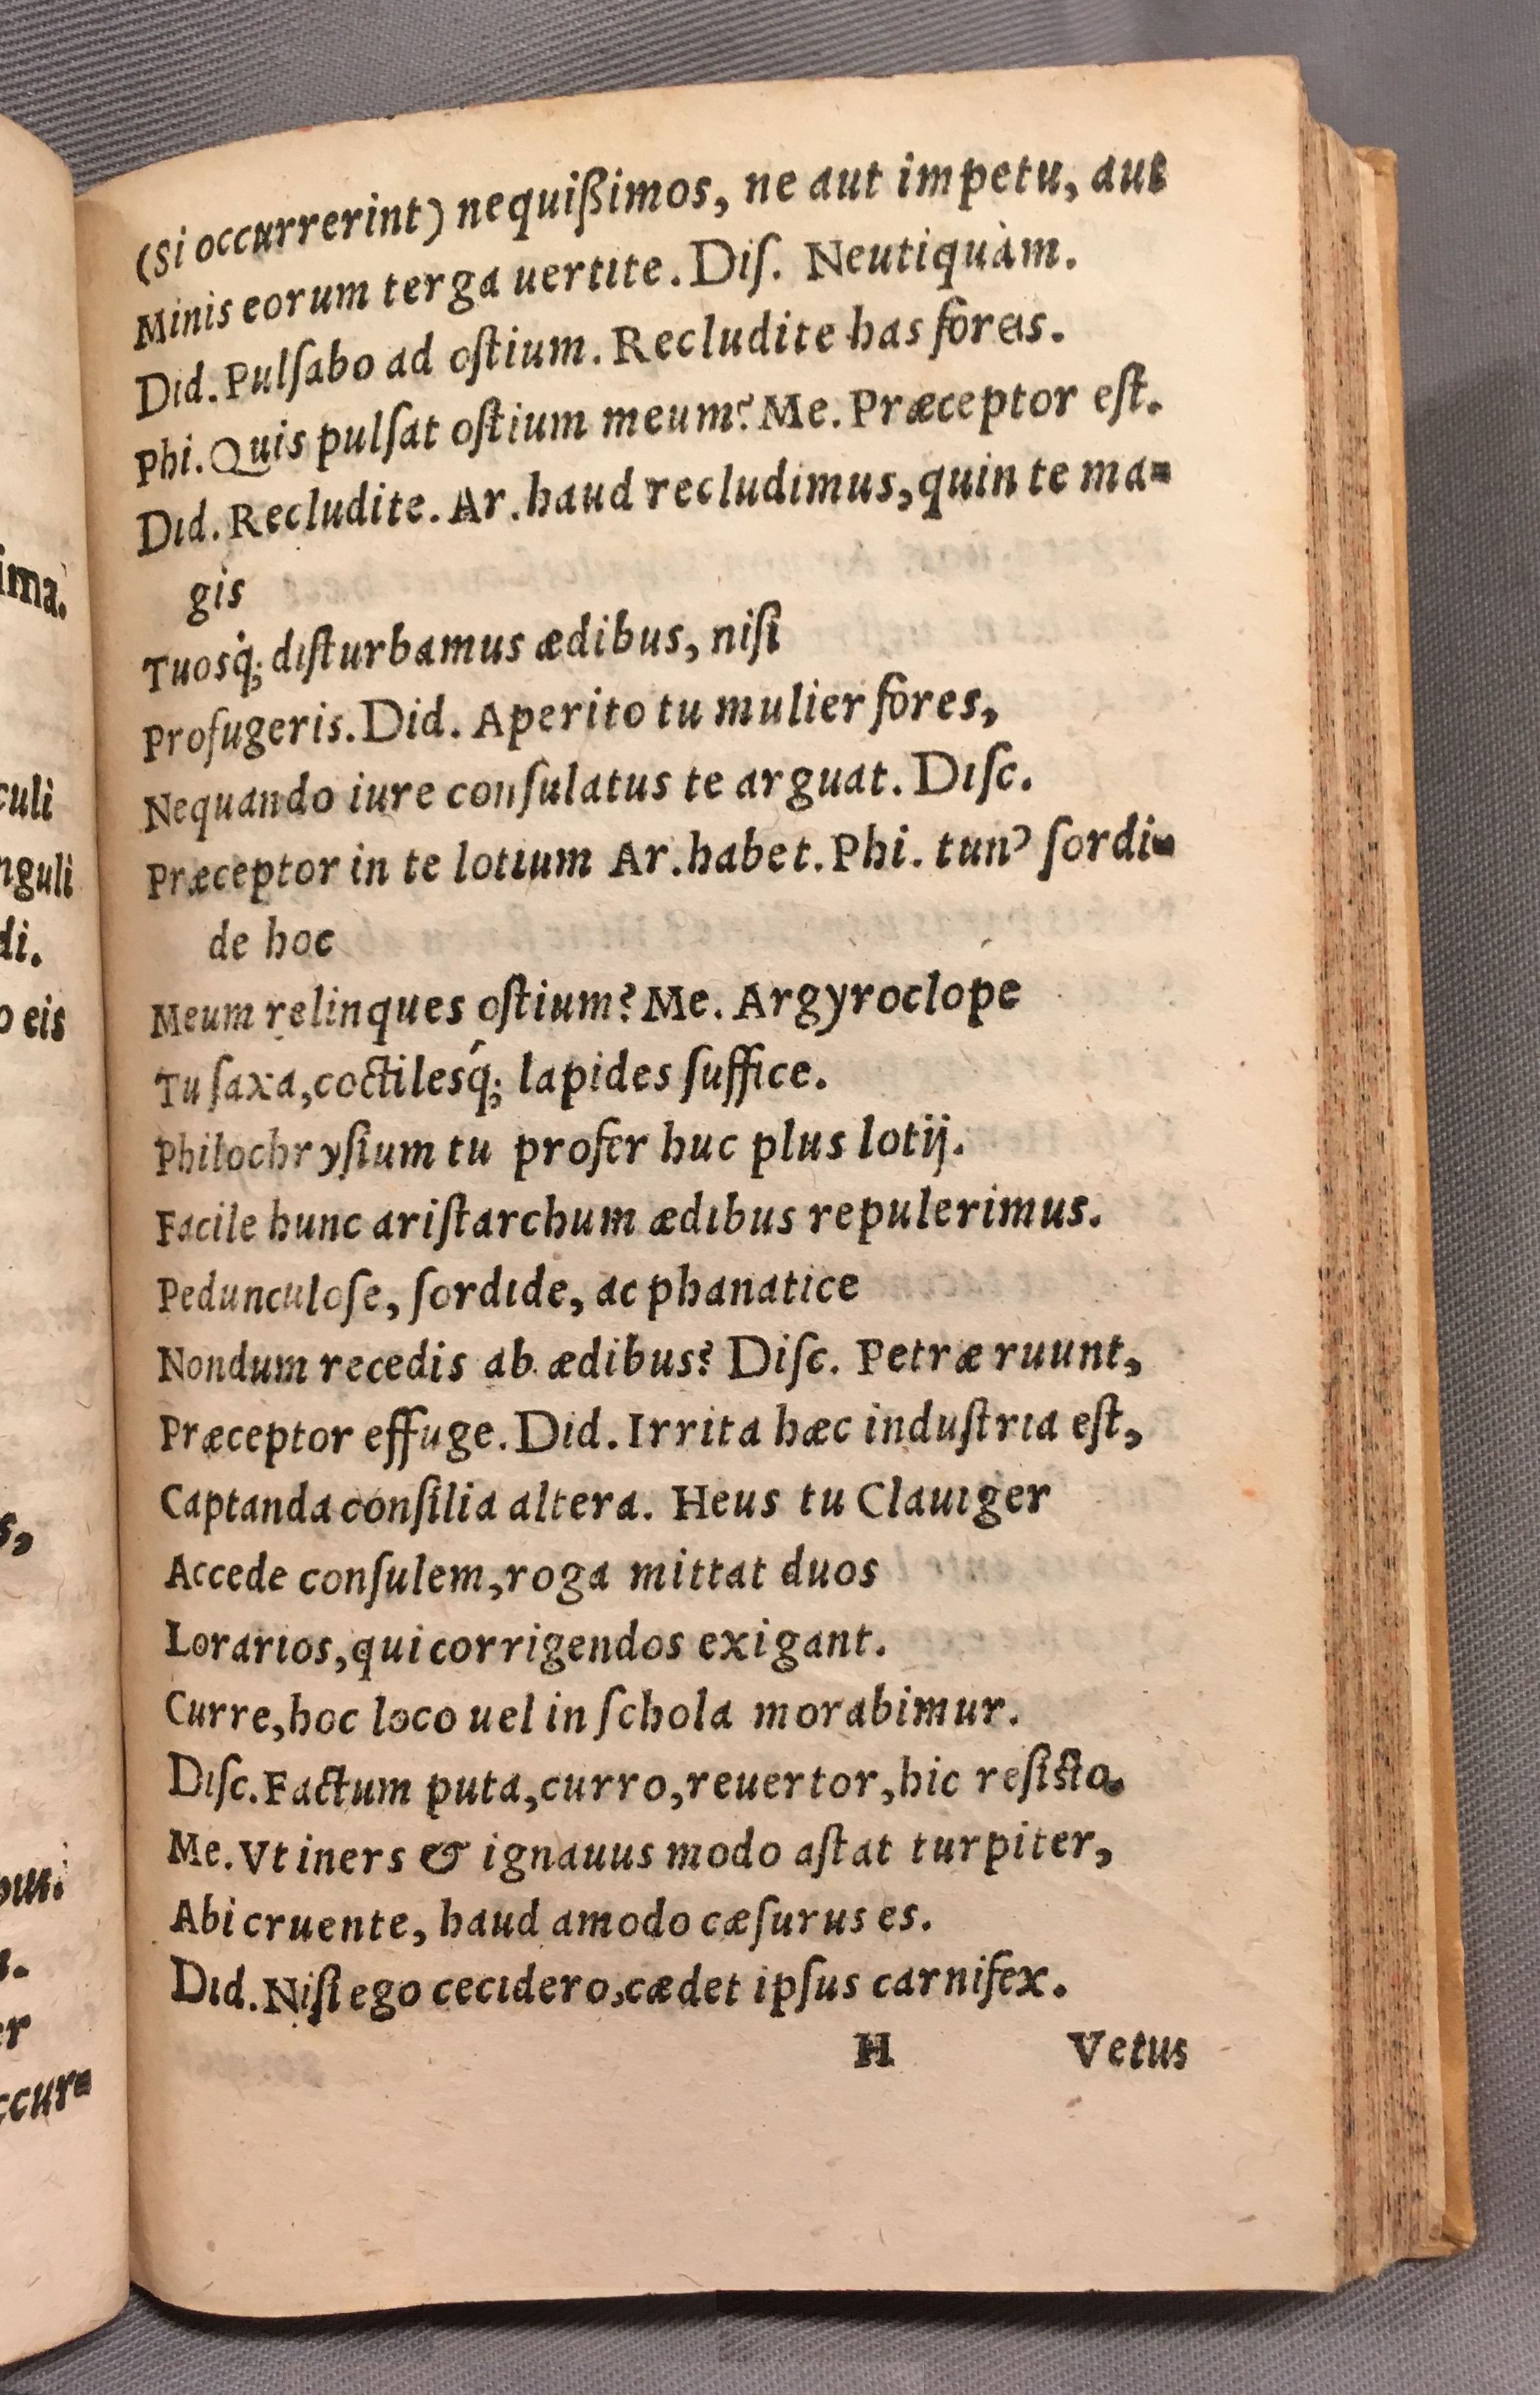 (Si occurrerint) nequißimos, ne aut impetu, aut
Minis eorum terga uertite. Diſ. Neutiquàm.
Did. Pulſabo ad oſtium. Recludite has fores.
Phi. Quis pulſat oſtium meum? Me. Præceptor eſt.
Did. Recludite. Ar. haud recludimus, quin te ma-
gis
Tuosq́; diſturbamus ædibus, niſi
Profugeris. Did. Aperito tu mulier fores,
Nequando iure conſulatus te arguat. Diſc.
Præceptor in te lotium Ar. habet. Phi. tun' ſordi-
de hoc
Meum relinques oſtium? Me. Argyroclope
Tu ſaxa, coctilesq́; lapides ſuffice.
Philochryſium tu profer huc plus lotij.
Facile hunc ariſtarchum ædibus repulerimus.
Pedunculoſe, ſordide, ac phanatice
Nondum recedis ab ædibus? Diſc. Petræ ruunt,
Præceptor effuge. Did. Irrita hæc induſtria eſt,
Captanda conſilia altera. Heus tu Clauiger
Accede conſulem, roga mittat duos
Lorarios, qui corrigendos exigant.
Curre, hoc loco uel in ſchola morabimur.
Diſc. Factum puta, curro, reuertor, hic reſiſto.
Me. Vt iners & ignauus modo aſtat turpiter,
Abi cruente, haud amodo cæſurus es.
Did. Niſi ego cecidero, cædet ipſus carnifex.
H Vetus
ima.
culi
nguli
di.
o eis
s,
er
ccur-